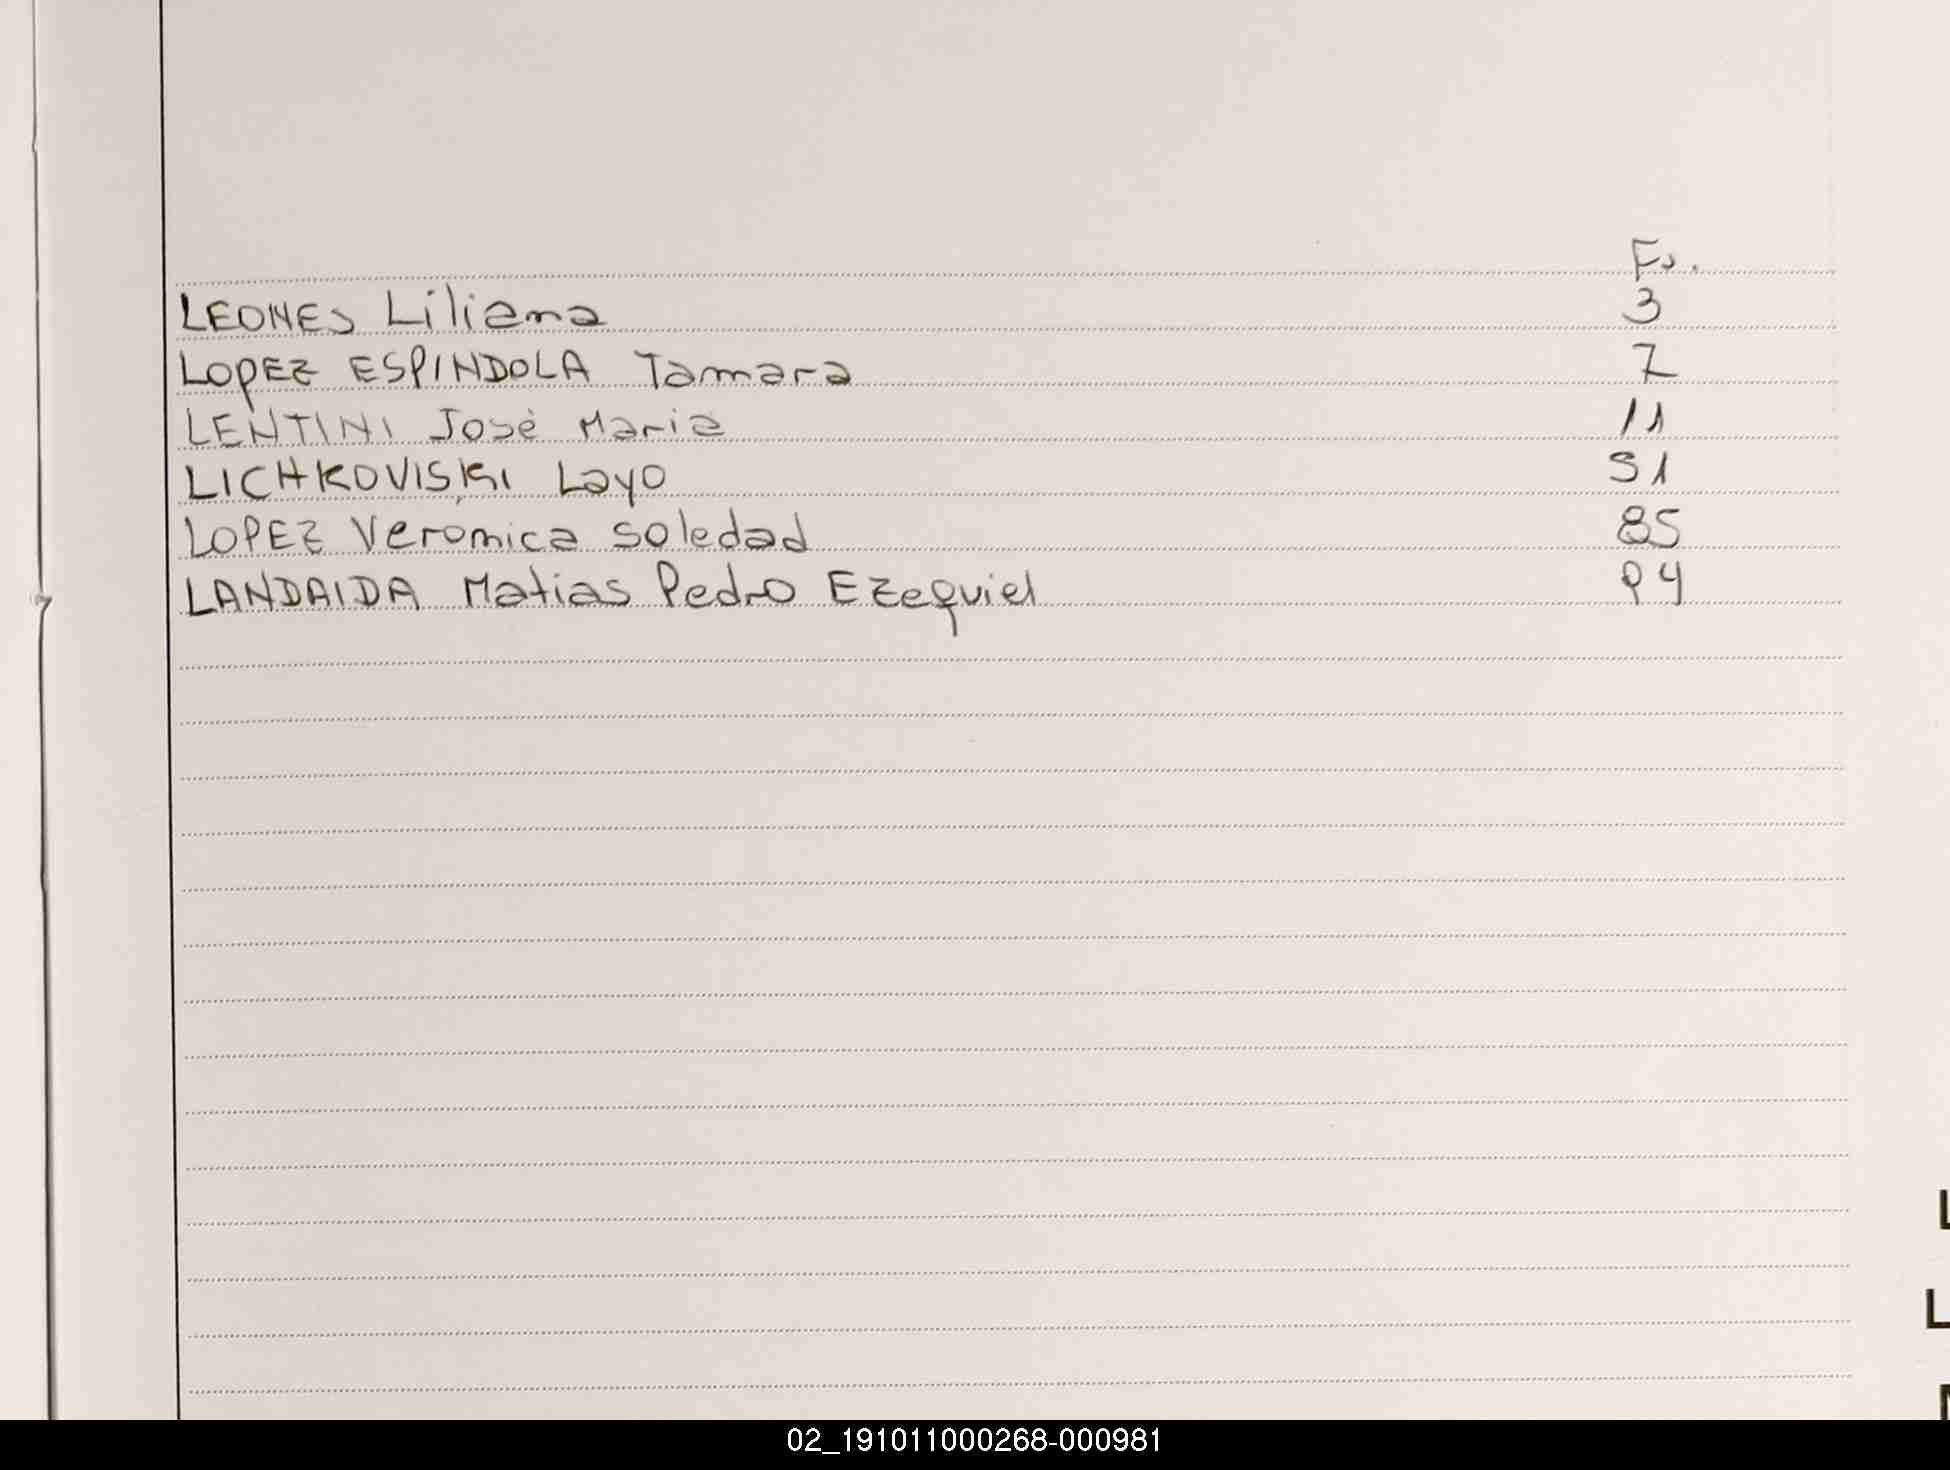 Fs.
LEONES Liliana 3
LOPEZ ESPINDOLA Tamara 7
LENTINI José Maria 11
LICHKOVISKI Layo 51
LOPEZ Veronica Soledad 85
LANDAIDA Matias Pedro Ezequiel 94
L
L
02_191011000268-000981